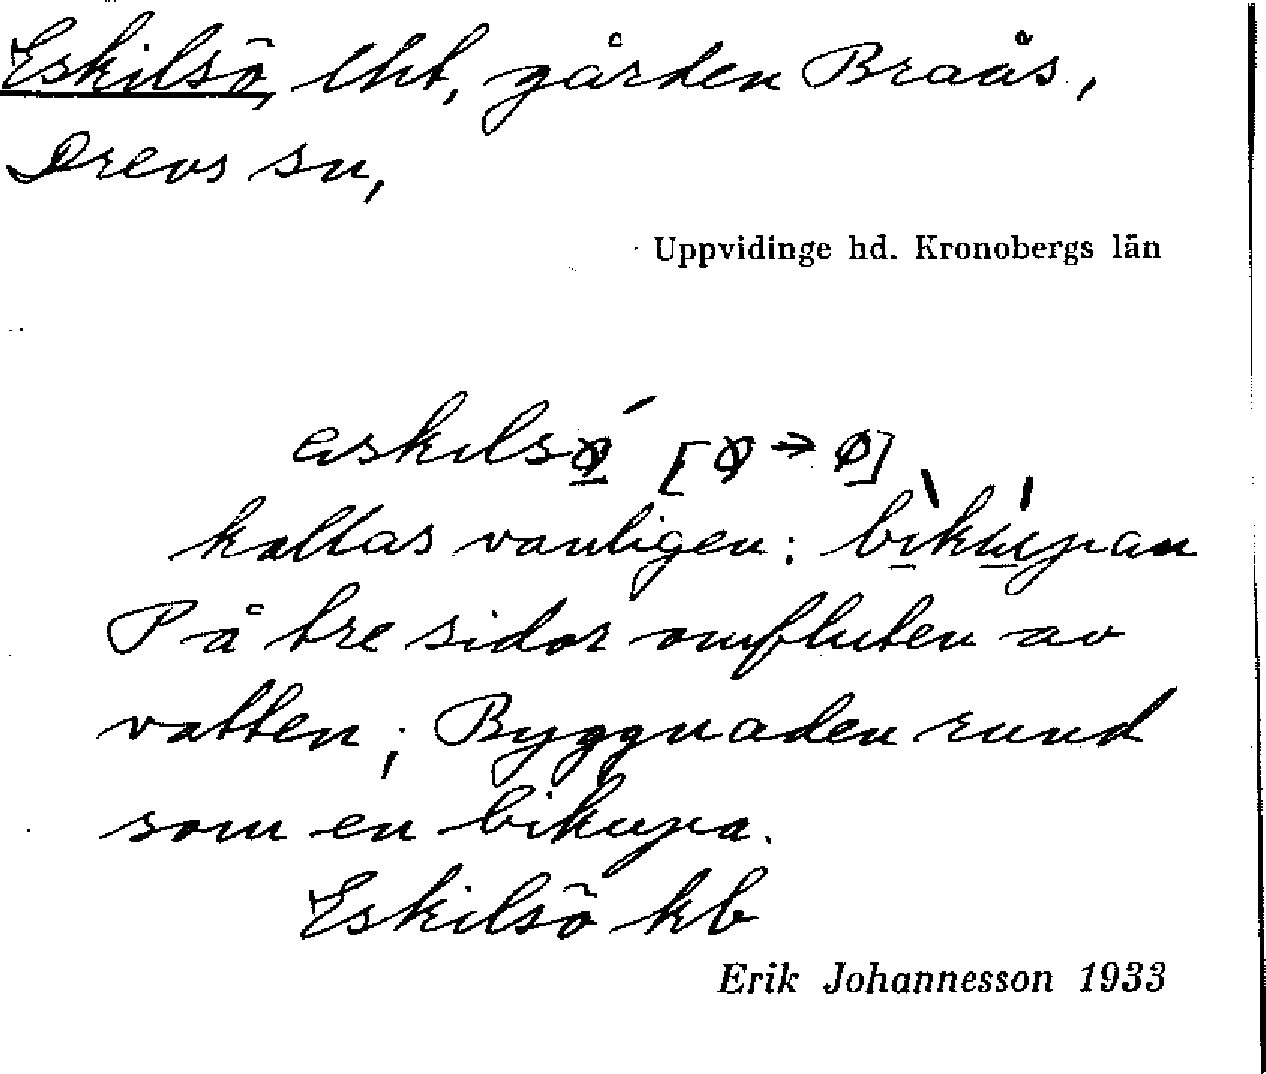 Eskilsö, lht, gården Braås,
Drevs sn,
Uppvidinge hd. Kronobergs län
eskilsǿ̲ [ø → ø]
kallas vanligen: bikupan
På tre sidor omfluten av
vatten; Byggnaden rund
som en bikupa.
Eskilsö kb
Erik Johannesson 1933